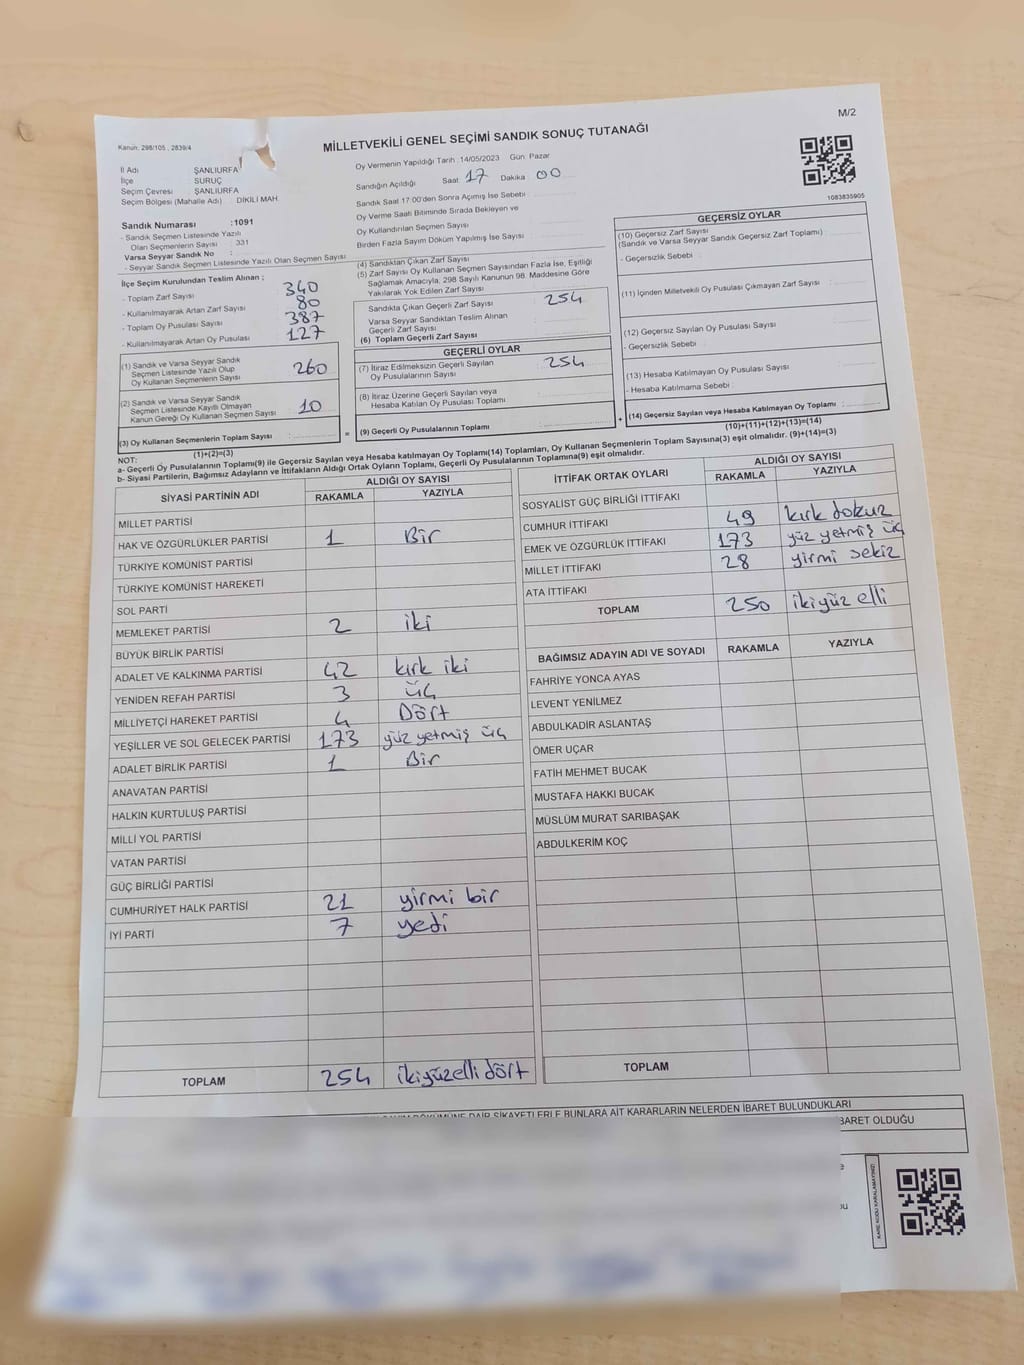 M/2
Kanun; 298/105 , 2839/4
MİLLETVEKİLİ GENEL SEÇİMİ SANDIK SONUÇ TUTANAĞI
İl Adı ŞANLIURFA
İlçe SURUÇ
Seçim Çevresi ŞANLIURFA
Seçim Bölgesi (Mahalle Adı) : DİKİLİ MAH.
Sandık Numarası :1091
- Sandık Seçmen Listesinde Yazılı
Olan Seçmenlerin Sayısı : 331
Varsa Seyyar Sandık No :
- Seyyar Sandık Seçmen Listesinde Yazılı Olan Seçmen Sayısı
Oy Vermenin Yapıldığı Tarih :14/05/2023 Gün Pazar
Sandığın Açıldığı Saat: 17 Dakika : 00
Sandık Saat 17:00'den Sonra Açımış İse Sebebi
Oy Verme Saati Bitiminde Sırada Bekleyen ve
Oy Kullandırılan Seçmen Sayısı
Birden Fazla Sayım Döküm Yapılmış İse Sayısı
1083835905
İlçe Seçim Kurulundan Teslim Alınan ;
- Toplam Zarf Sayısı 340
- Kullanılmayarak Artan Zarf Sayısı 80
- Toplam Oy Pusulası Sayısı 387
- Kullanılmayarak Artan Oy Pusulası 127
(1) Sandık ve Varsa Seyyar Sandık
Seçmen Listesinde Yazılı Olup
Oy Kullanan Seçmenlerin Sayısı 260
(2) Sandık ve Varsa Seyyar Sandık
Seçmen Listesinde Kayıtlı Olmayan
Kanun Gereği Oy Kullanan Seçmen Sayısı 10
(3) Oy Kullanan Seçmenlerin Toplam Sayısı
(1)+(2)=(3)
(4) Sandıktan Çıkan Zarf Sayısı
(5) Zarf Sayısı Oy Kullanan Seçmen Sayısından Fazla İse, Eşitliği
Sağlamak Amacıyla, 298 Sayılı Kanunun 98. Maddesine Göre
Yakılarak Yok Edilen Zarf Sayısı
Sandıkta Çıkan Geçerli Zarf Sayısı 254
Varsa Seyyar Sandıktan Teslim Alınan
Geçerli Zarf Sayısı
(6) Toplam Geçerli Zarf Sayısı
GEÇERLİ OYLAR
(7) İtiraz Edilmeksizin Geçerli Sayılan
Oy Pusulalarının Sayısı 254
(8) İtiraz Üzerine Geçerli Sayılan veya
Hesaba Katılan Oy Pusulası Toplamı
= (9) Geçerli Oy Pusulalarının Toplamı +
GEÇERSİZ OYLAR
(10) Geçersiz Zarf Sayısı
(Sandık ve Varsa Seyyar Sandık Geçersiz Zarf Toplamı)
- Geçersizlik Sebebi
(11) İçinden Milletvekili Oy Pusulası Çıkmayan Zarf Sayısı
(12) Geçersiz Sayılan Oy Pusulası Sayısı
- Geçersizlik Sebebi
(13) Hesaba Katılmayan Oy Pusulası Sayısı
- Hesaba Katılmama Sebebi
(14) Geçersiz Sayılan veya Hesaba Katılmayan Oy Toplamı
(10)+(11)+(12)+(13)=(14)
NOT:
a- Geçerli Oy Pusulalarının Toplamı(9) ile Geçersiz Sayılan veya Hesaba katılmayan Oy Toplamı(14) Toplamları, Oy Kullanan Seçmenlerin Toplam Sayısına(3) eşit olmalıdır. (9)+(14)=(3)
b- Siyasi Partilerin, Bağımsız Adayların ve İttifakların Aldığı Ortak Oyların Toplamı, Geçerli Oy Pusulalarının Toplamına(9) eşit olmalıdır.
SİYASİ PARTİNİN ADI ALDIĞI OY SAYISI
RAKAMLA YAZIYLA
MİLLET PARTİSİ
HAK VE ÖZGÜRLÜKLER PARTİSİ 1 Bir
TÜRKİYE KOMÜNİST PARTİSİ
TÜRKİYE KOMÜNİST HAREKETİ
SOL PARTİ
MEMLEKET PARTİSİ 2 iki
BÜYÜK BİRLİK PARTİSİ
ADALET VE KALKINMA PARTİSİ 42 kırk iki
YENİDEN REFAH PARTİSİ 3 üç
MİLLİYETÇİ HAREKET PARTİSİ 4 Dört
YEŞİLLER VE SOL GELECEK PARTİSİ 173 yüz yetmiş üç
ADALET BİRLİK PARTİSİ 1 Bir
ANAVATAN PARTİSİ
HALKIN KURTULUŞ PARTİSİ
MİLLİ YOL PARTİSİ
VATAN PARTİSİ
GÜÇ BİRLİĞİ PARTİSİ
CUMHURİYET HALK PARTİSİ 21 yirmi bir
İYİ PARTİ 7 yedi
TOPLAM 254 ikiyüzelli dört
İTTİFAK ORTAK OYLARI ALDIĞI OY SAYISI
RAKAMLA YAZIYLA
SOSYALİST GÜÇ BİRLİĞİ İTTİFAKI
CUMHUR İTTİFAKI 49 kırk dokuz
EMEK VE ÖZGÜRLÜK İTTİFAKI 173 yüz yetmiş üç
MİLLET İTTİFAKI 28 yirmi sekiz
ATA İTTİFAKI
TOPLAM 250 ikiyüz elli
BAĞIMSIZ ADAYIN ADI VE SOYADI RAKAMLA YAZIYLA
FAHRİYE YONCA AYAS
LEVENT YENİLMEZ
ABDULKADİR ASLANTAŞ
ÖMER UÇAR
FATİH MEHMET BUCAK
MUSTAFA HAKKI BUCAK
MÜSLÜM MURAT SARIBAŞAK
ABDULKERİM KOÇ
TOPLAM
DÖKÜMÜNE DAİR ŞİKAYETLERLE BUNLARA AİT KARARLARIN NELERDEN İBARET BULUNDUKLARI
BARET OLDUĞU
KARE KODU KARALAMAYINIZ!